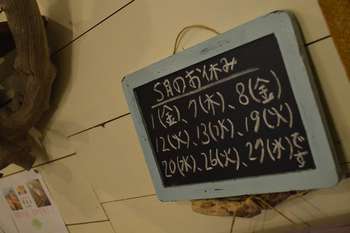 5月のお休み
1(金)、7(木)、8(金)
12(火)、13(水)、19(火)
20(水)、26(火)、27(水)です